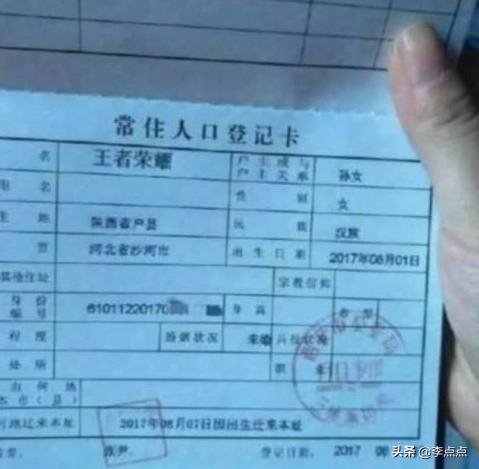 常住人口登记卡
名 王者荣耀 户主或与户主关系 孙女
用名 性别 女
生地 陕西省户县 民族 汉族
贯 河北省沙河市 出生日期 2017年08月01日
其他住址 宗教信仰
身份编号 6101122017 身高
程度 婚姻状况 未婚 兵役状况
处所 职
由何地
本市（县）
何地迁来本址 2017年08月07日因出生迁来本址
登记日期 2017
头条 @李点点